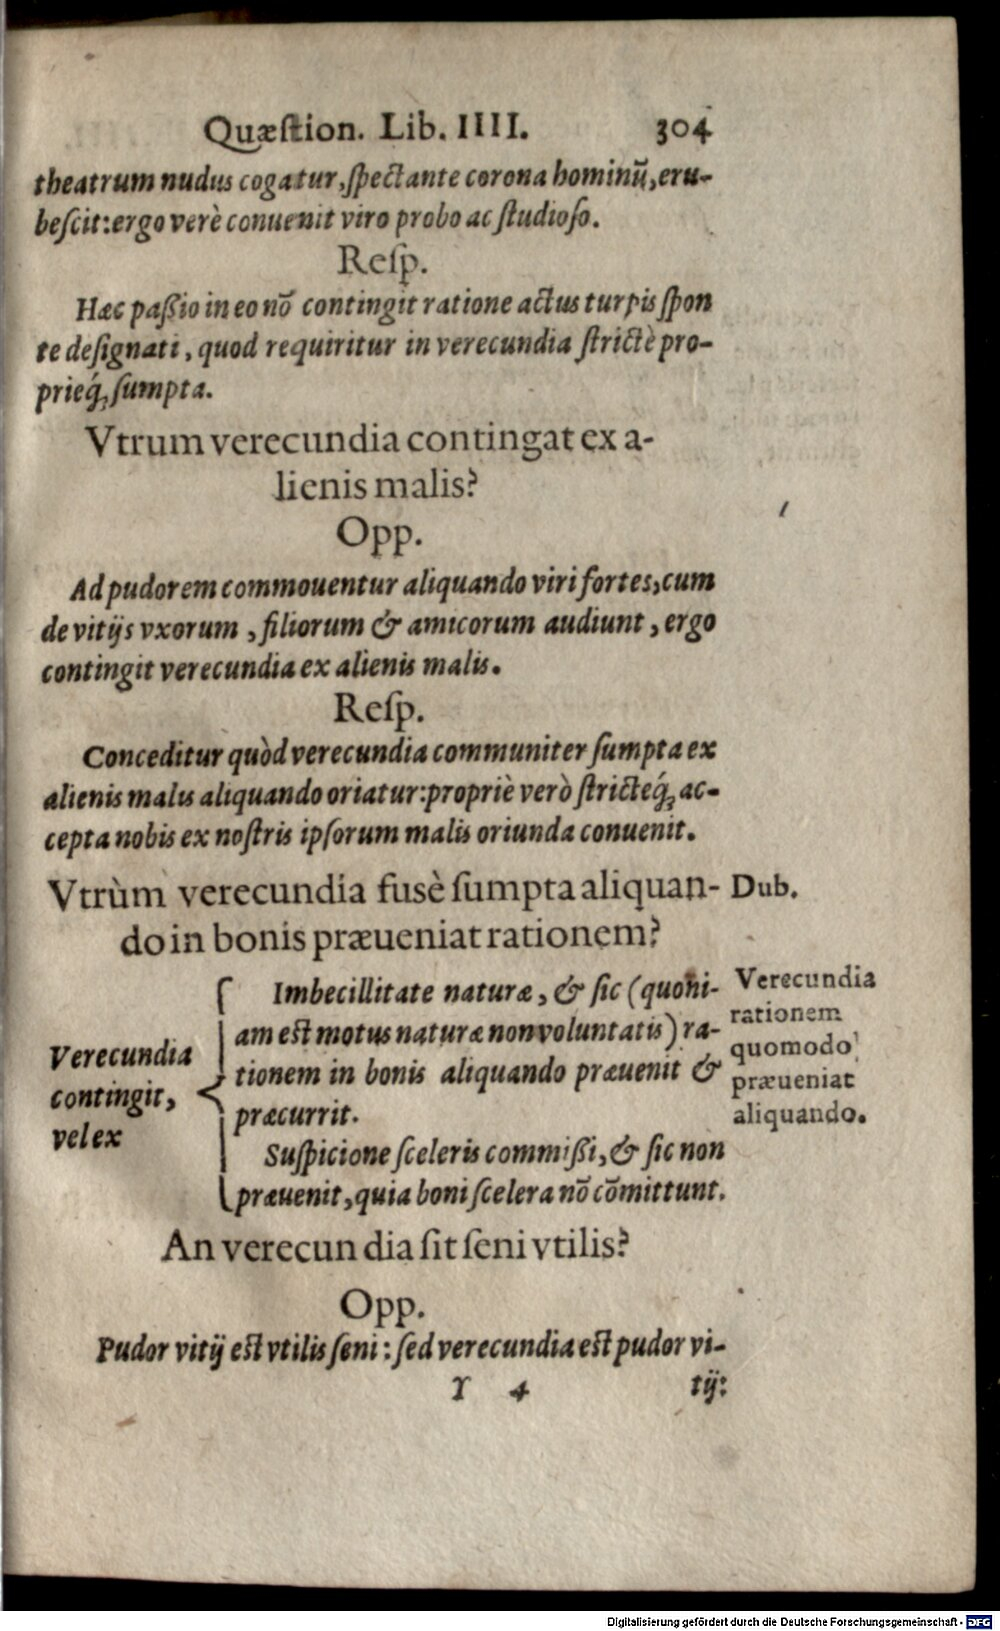 Quæſtion. Lib. IIII. 304
theatrum nudus cogatur, ſpectante corona hominū, eru-
beſcit: ergo verè conuenit viro probo ac ſtudioſo.
Reſp.
Hæc paßio in eo nō contingit ratione actus turpis ſpon
te deſignati, quod requiritur in verecundia ſtrictè pro-
prieq́; ſumpta.
Vtrum verecundia contingat ex a-
lienis malis?
Opp.
Ad pudorem commouentur aliquando viri fortes, cum
de vitijs vxorum, filiorum & amicorum audiunt, ergo
contingit verecundia ex alienis malis.
Reſp.
Conceditur quòd verecundia communiter ſumpta ex
alienis malis aliquando oriatur: propriè verò ſtricteq́; ac-
cepta nobis ex noſtris ipſorum malis oriunda conuenit.
Vtrùm verecundia fusè ſumpta aliquan-
do in bonis præueniat rationem?
Dub.
Verecundia
contingit,
vel ex
Imbecillitate naturæ, & ſic (quoni-
am est motus naturæ non voluntatis) ra-
tionem in bonis aliquando præuenit &
præcurrit.
Suſpicione ſceleris commißi, & ſic non
præuenit, quia boni ſcelera nō cōmittunt.
Verecundia
rationem
quomodo
præueniat
aliquando.
An verecun dia ſit ſeni vtilis?
Opp.
Pudor vitij est vtilis ſeni: ſed verecundia est pudor vi-
Y 4 tij:
Digitalisierung gefördert durch die Deutsche Forschungsgemeinschaft - DFG